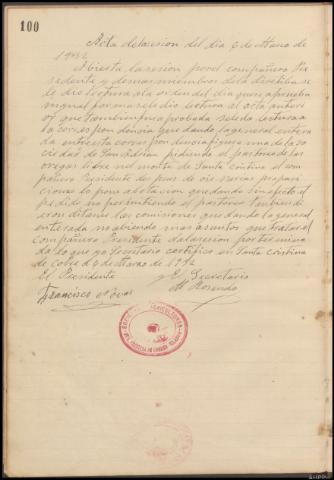 100
Acta de la sesion del dia 6 de Marzo de
1932
Abierta la sesion por el compañero Pre
sedente y demas miembros de la directiba se
le dio lectura a la orden del dia que es aprueba
igual forma se le dio lectura al acta anteri
or que tambien fue aprobada se le da lectura a
la corespondencia quedando la general entera
da entre esta corespondencia figura una de la so
ciedad de San Adrian pidiendo el pastoreo de las
ovegas libre nel monte de Santa Cristina el com
pañero Presidente des pues de oir varias propasi
ciones lo pone a botacion quedando sin efecto el
pedido no permitiendo el pastoreo tanbien di
eron ditamen las comisiones quedando la general
enterada no abiendo mas asuntos que tratar el
compañero Presidente da la sesion por termina
da lo que yo Secretario certifico en Santa Cristina
de Cobres 6 de Marzo de 1932
El Presidente y El Secretario
Francisco M. Rosendo